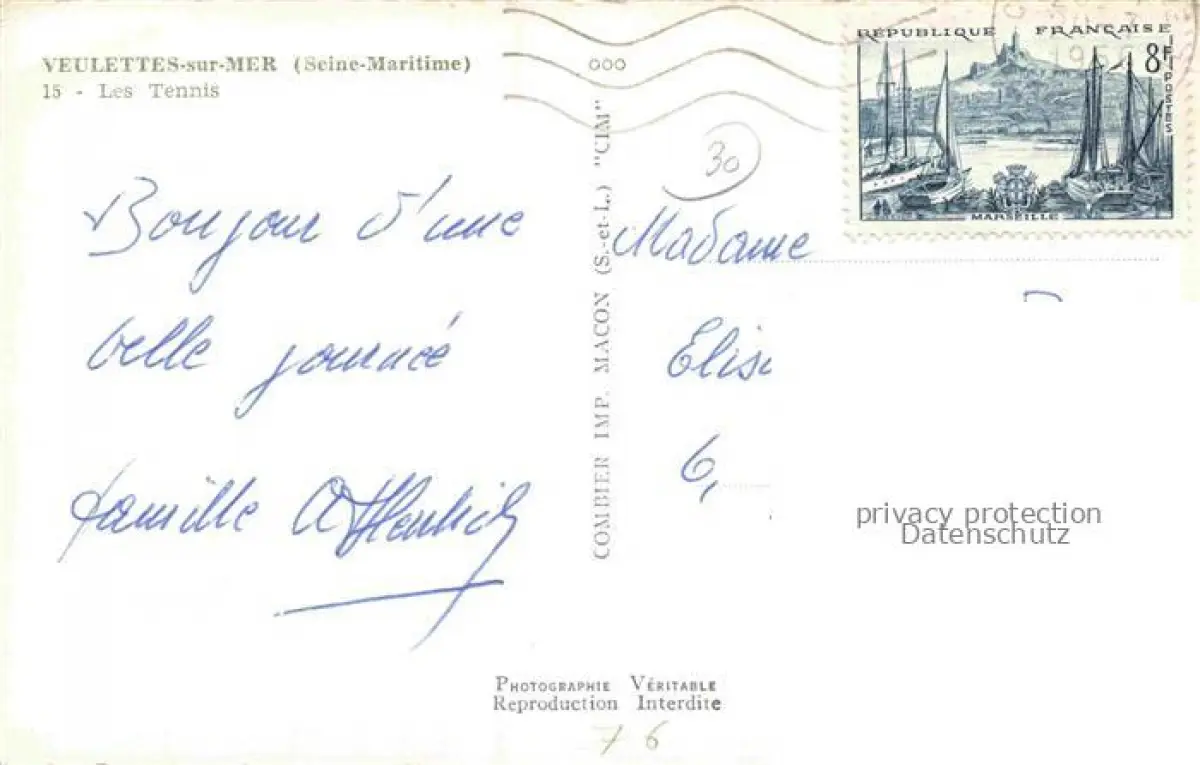 VEULETTES-sur-MER (Seine-Maritime)
15 - Les Tennis
Bonjour d'une
belle journée
famille
COMBIER IMP. MACON (S.-et-L.) "CIM"
30
RÉPUBLIQUE FRANÇAISE
8F
POSTES
MARSEILLE
Madame
Elise
6,
privacy protection
Datenschutz
PHOTOGRAPHIE VÉRITABLE
Reproduction Interdite
76